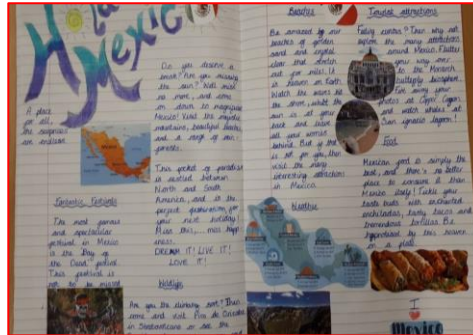 Hola
Mexico
A place
for all,
the surprises
are endless.
Fantastic Festivals
The most famous
and spectacular
festival in Mexico
is the Day of
the Dead festival.
This festival is
not to be missed
Do you deserve a
break? Are you missing
the sun? Well miss
no more, and come
on down to magnificent
Mexico! Visit the majestic
mountains, beautiful beaches
and a range of rain-
forests.
This pocket of paradise
is nestled between
North and South
America, and is the
perfect destination for
your next holiday!
Miss this, miss happi-
ness.
DREAM IT! LIVE IT!
LOVE IT!
Wildlife
Are you the climbing sort? Then
come and visit Pico de Orizaba
or see the
Beaches
Be amazed by our
beaches of golden
sand and crystal
clear that stretch
out for miles. It
is heaven on Earth.
Watch the waves on
the shore, whilst the
sun is at your
back and leave
all your worries
behind. But if that
is not for you, then
visit the many
interesting attractions
in Mexico.
Weather
Tourist attractions
Feeling curious? Then why not
explore the many attractions
around Mexico. Flutter
your way over
to the Monarch
Butterfly biosphere.
away your
photos at Copper Canyon
and watch whales at
San ignacio lagoon!
Food
Mexican food is simply the
best, and there's no better
place to consume it than
Mexico itself! Tickle your
taste buds with enchanted
enchiladas, tasty tacos and
tremendous tortillas. Be
hypnotised by this heaven
on a plate.
I
Mexico